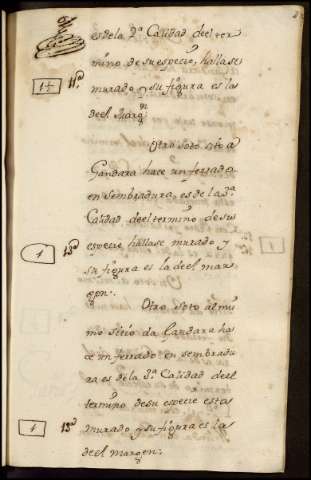 es dela 2ª Calidad deel ter
mino de su especie, hallase
1+ 11º murado y su figura es la
deel Marqn
Otro Soto sito a
Gandara hace un ferrado
en sembradura, es de la 2ª
Calidad deel termino de su
1 12º especie hallase murado y
su figura es la de el mar
gen.
Otro Soto al mis
mo Sitio da Gandara ha
ce un ferrado en sembradu
ra es dela 2ª Calidad deel
termino de su especie esta
1 13º murado y su figura es la
de el margen.